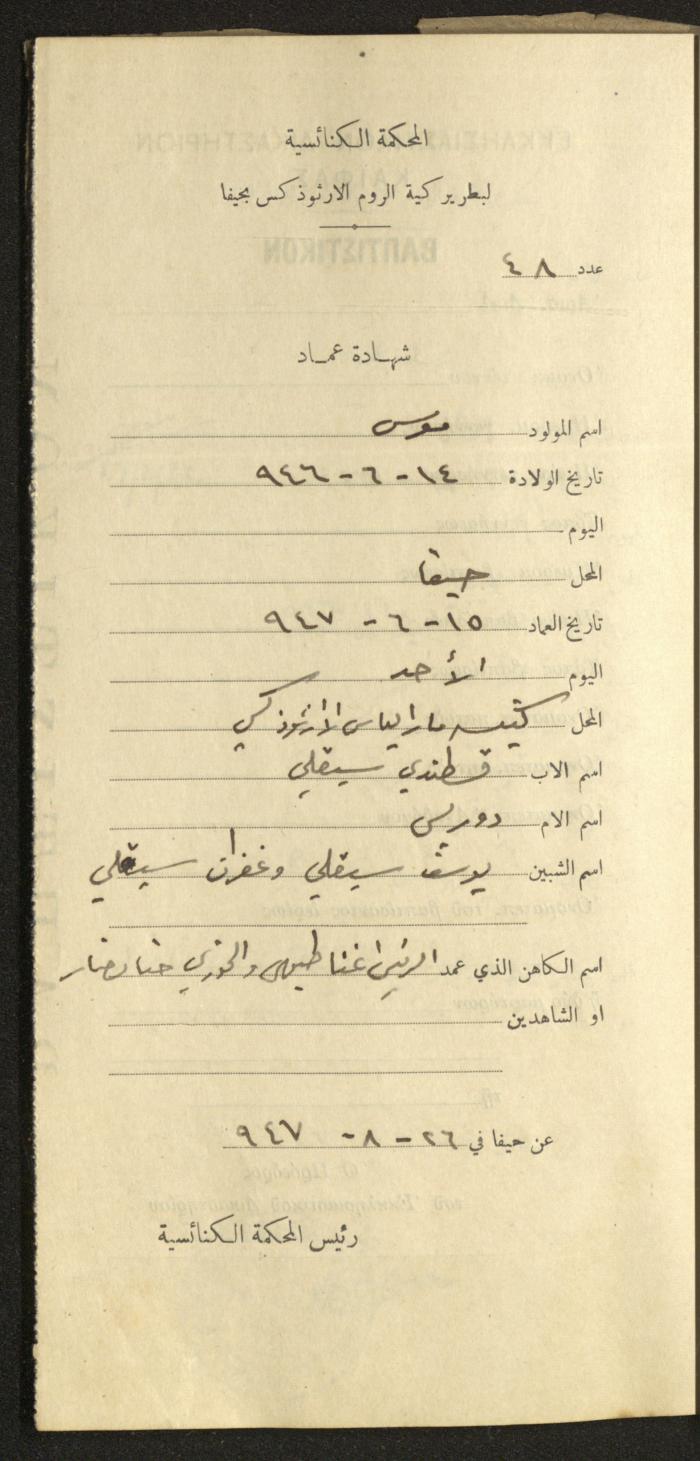 المحكمة الكنائسية
لبطريركية الروم الارثوذكس بحيفا
عدد ٤٨
شهادة عماد
اسم المولود موسى
تاريخ الولادة ١٤ - ٦ - ٩٤٦
اليوم
المحل حيفا
تاريخ العماد ١٥ - ٦ - ٩٤٧
اليوم الأحد
المحل كنيسة مار الياس الارثوذكسي
اسم الاب قسطندي سيقلي
اسم الام دوريس
اسم الشبين يوسف سيقلي وغفران سيقلي
اسم الكاهن الذي عمد الريس اغناطيوس والخوري حنا
او الشاهدين
عن حيفا في ٢٦ - ٨ - ٩٤٧
رئيس المحكمة الكنائسية